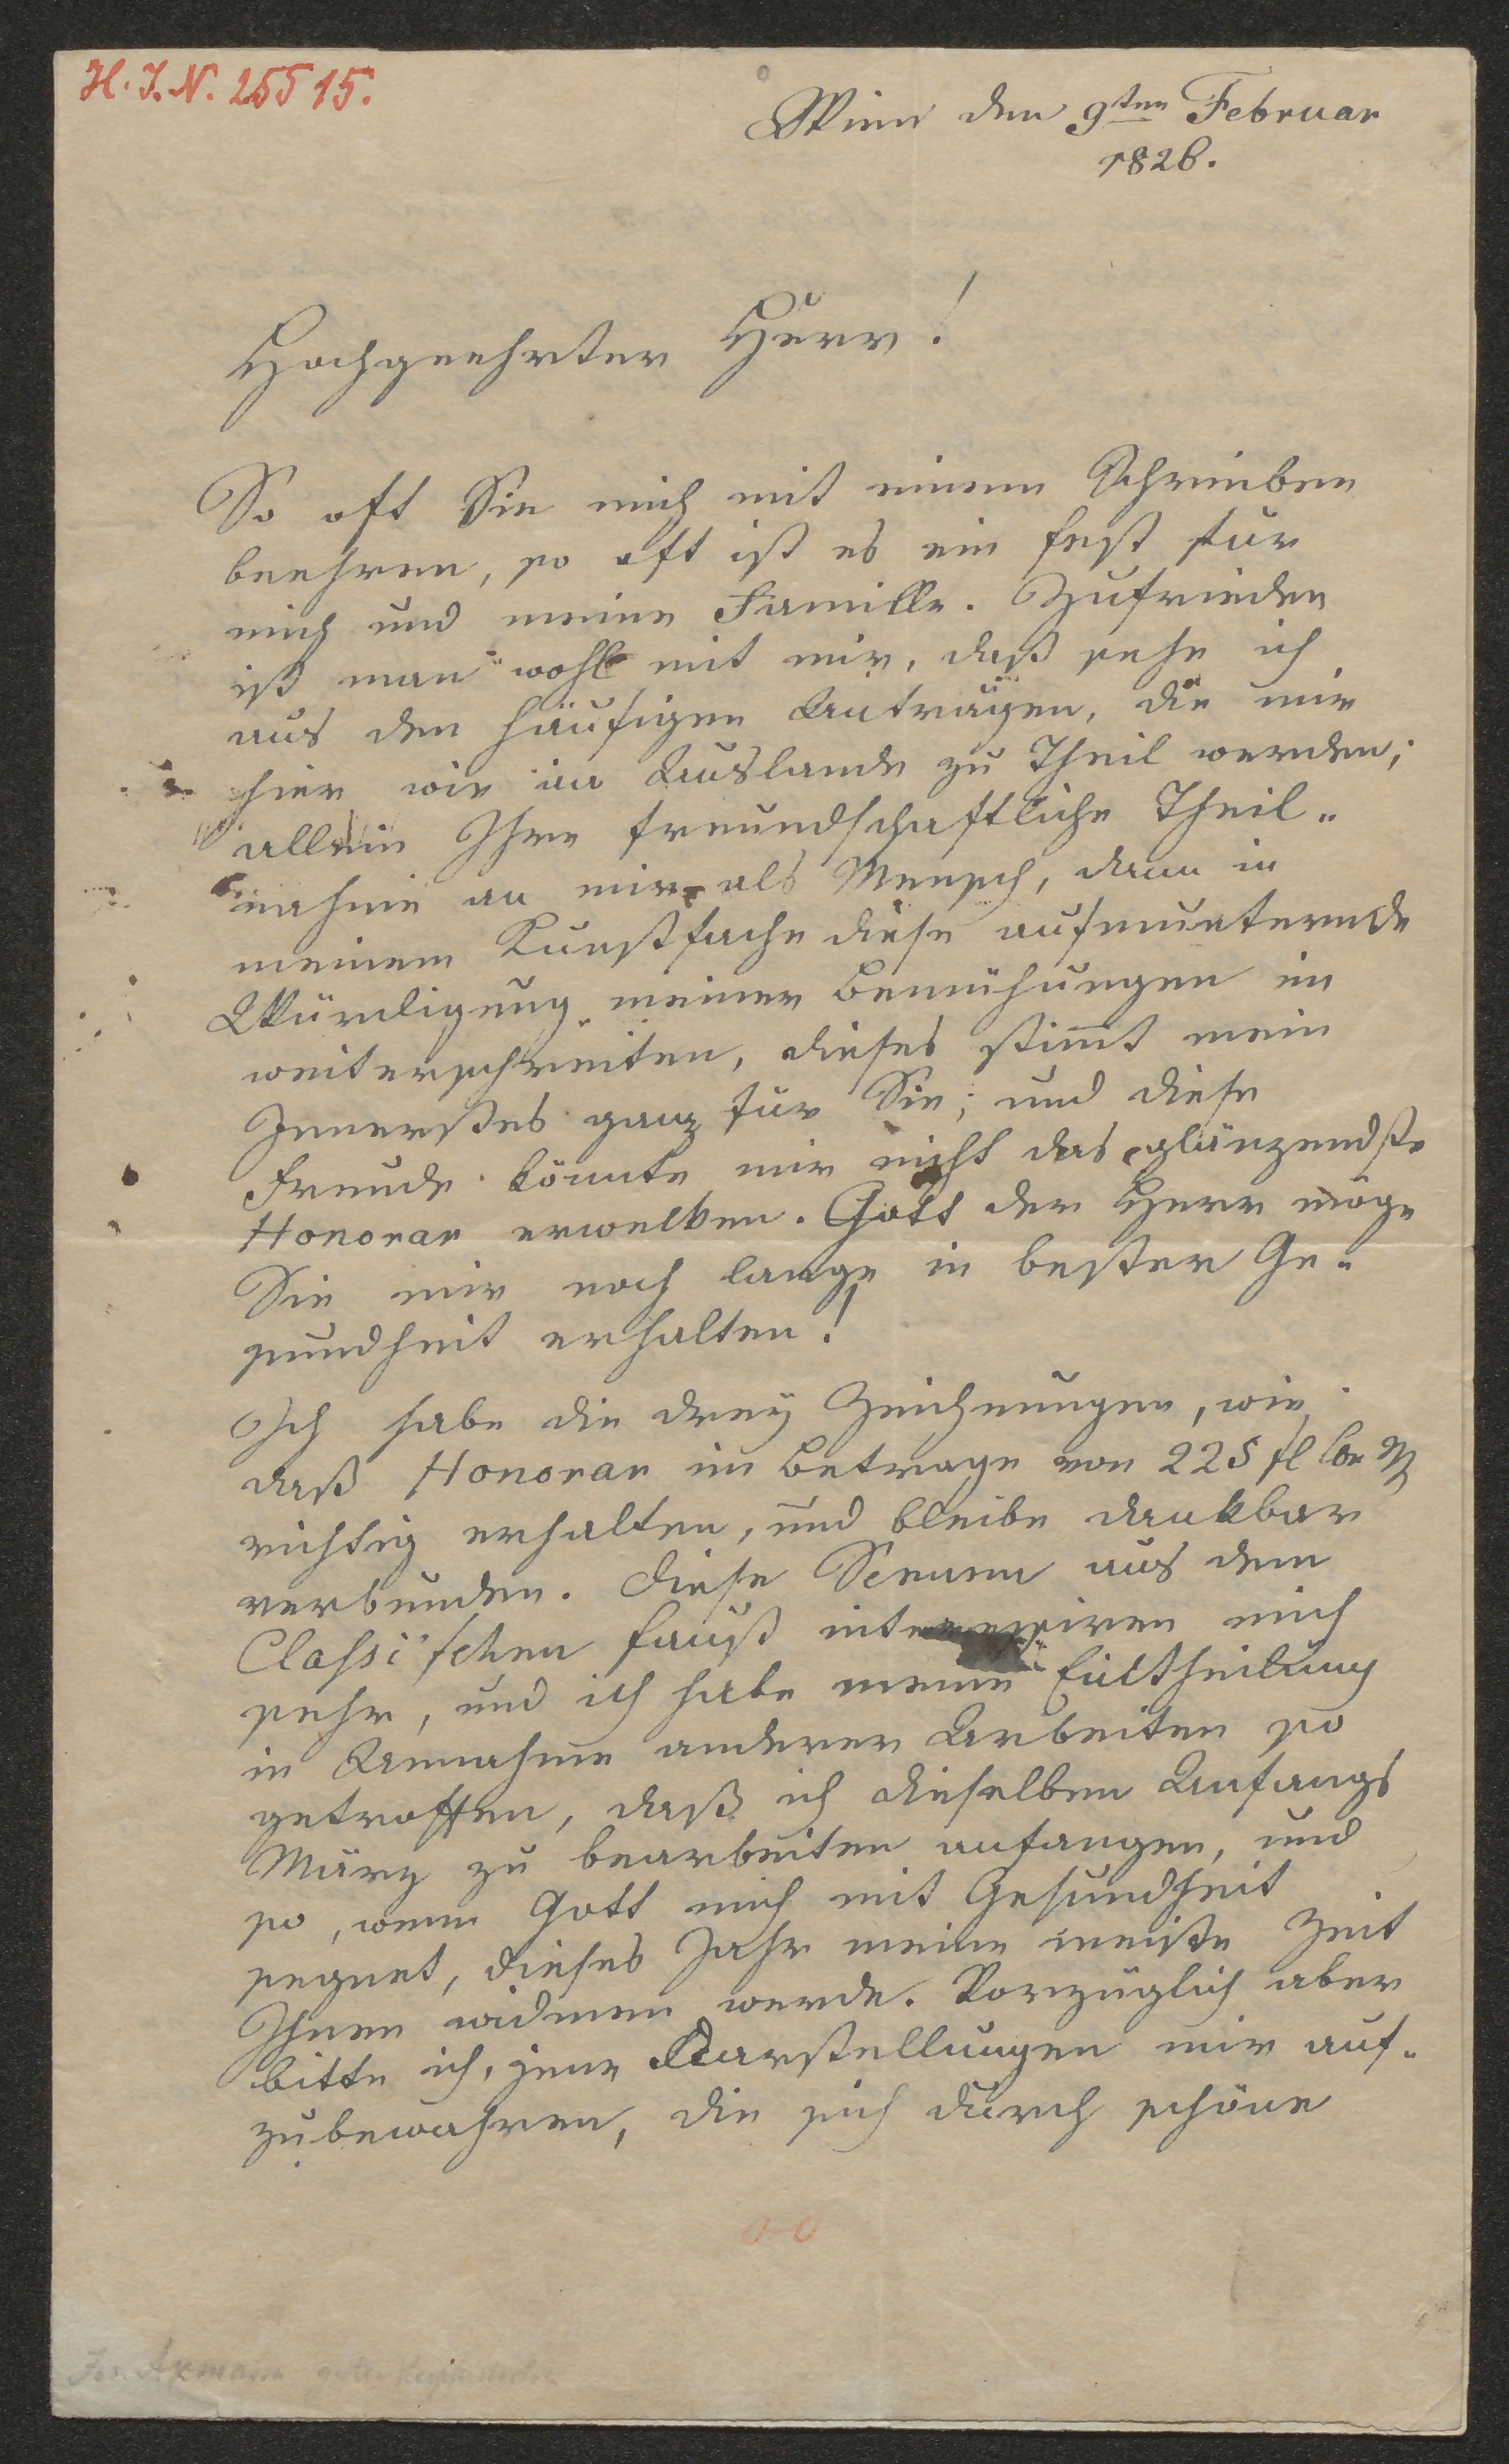 H. I. N. 25515.
Wien den 9ten Februar
1826.
Hochgeehrter Herr!
So oft Sie mich mit einem Schreiben
beehren, so oft ist es ein Fest für
mich und meine Familie. Zufrieden
ist man wohl mit mir, daß sehe ich
aus den häufigen Anträgen, die mir
hier wie im Auslande zu Theil werden;
allein Ihre freundschaftliche Theil-
nahme an mir als Mensch, dann in
meinem Kunstfache diese aufmunternde
Würdigung meiner Bemühungen im
weiterschreiten, dieses stimmt mein
Innerstes ganz für Sie; und diese
Freude könnte mir nicht das glänzendste
Honorar erwecken. Gott der Herr möge
Sie mir noch lange in bester Ge-
sundheit erhalten!
Ich habe die drey Zeichnungen, wie
daß Honorar im Betrage von 225 fl Con M
richtig erhalten, und bleibe dankbar
verbunden. Diese Scenen aus dem
Classischen Faust interessiren mich
sehr, und ich habe meine Eintheilung
in Annahme anderer Arbeiten so
getroffen, daß ich dieselben Anfangs
März zu bearbeiten anfangen, und
so, wenn Gott mich mit Gesundheit
segnet, dieses Jahr meine meiste Zeit
Ihnen widmen werde. Vorzüglich aber
bitte ich, jene Darstellungen mir auf-
zubewahren, die sich durch schöne
Jos. Axmann